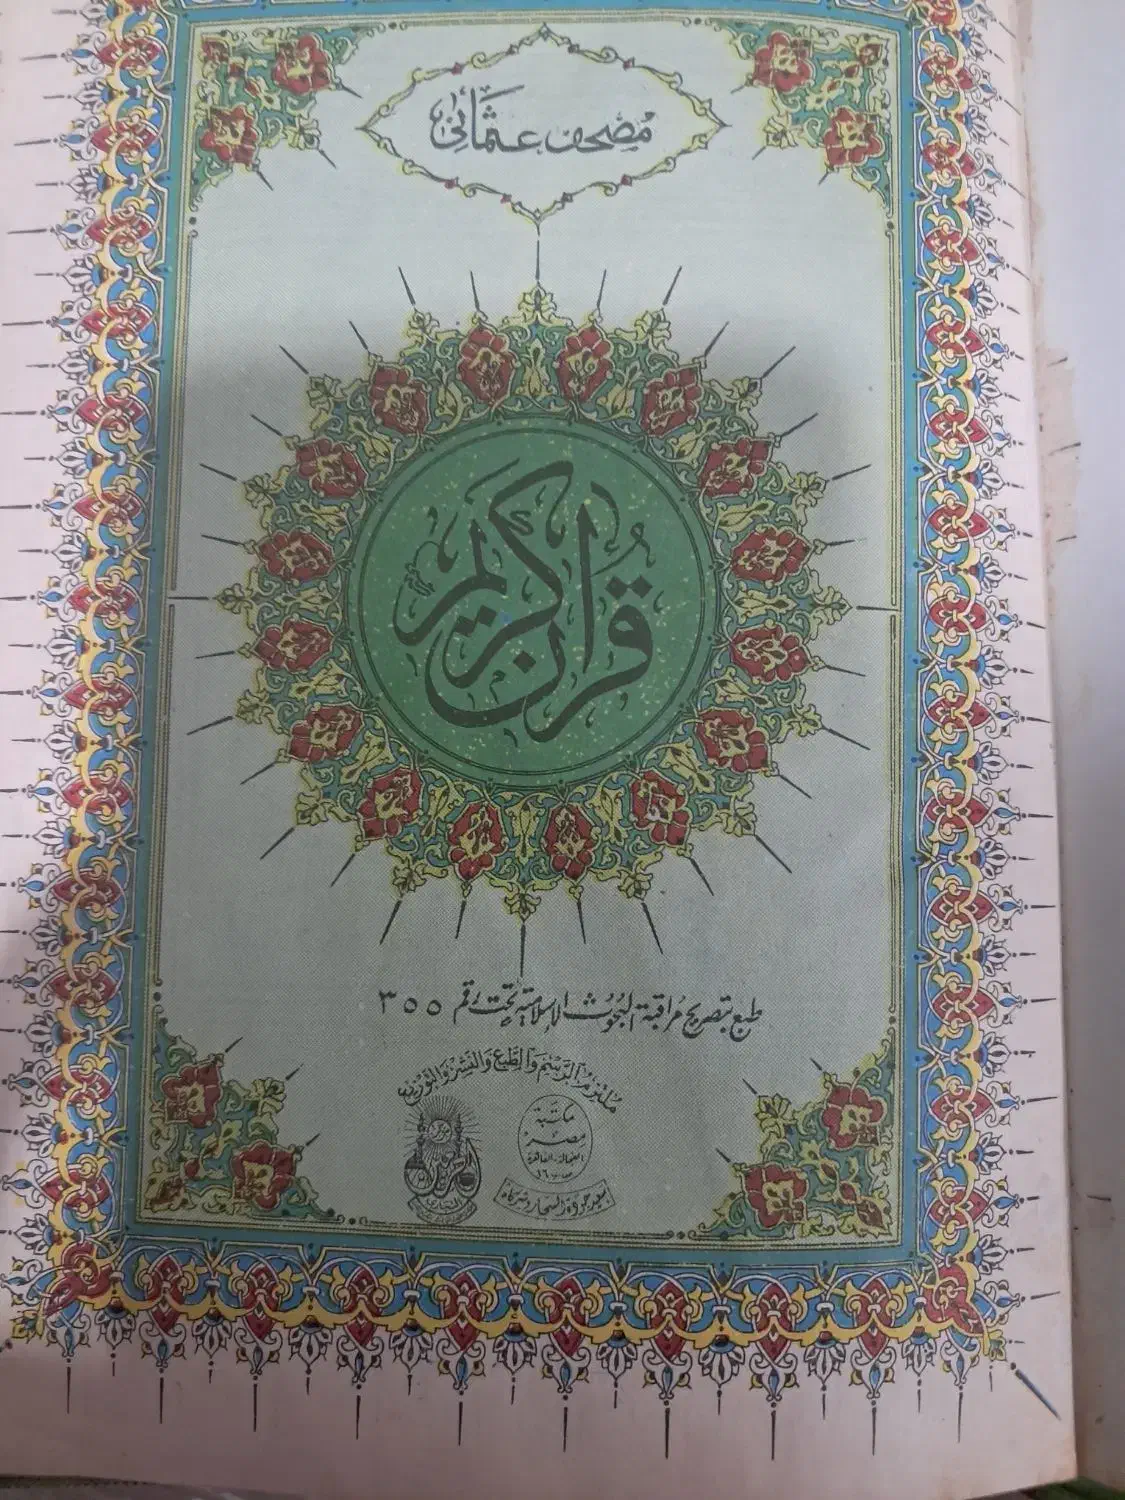 مصحف عثماني
قرآن كريم
طبع بتصريح مراقبة البحوث الإسلامية تحت رقم ٣٥٥
ملتزم الرسم والطبع والنشر والتوزيع
مكتبة
مصر
الفجالة - القاهرة
سعيد جودة السحار وشركاه